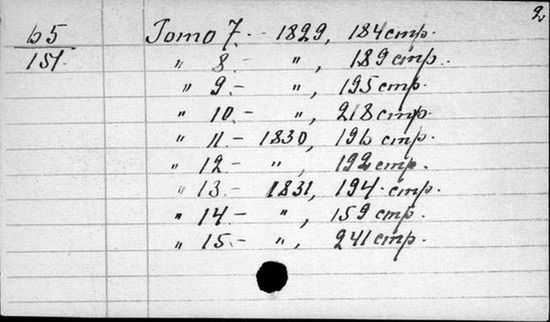 2
65
151.
Tomo 7.- 1829, 184 стр.
" 8.- ", 189 стр.
" 9.- ", 195 стр.
" 10.- ", 218 стр.
" 11.- 1830, 196 стр.
" 12.- ", 192 стр.
" 13.- 1831, 194. стр.
" 14.- ", 159 стр.
" 15.- ", 241 стр.